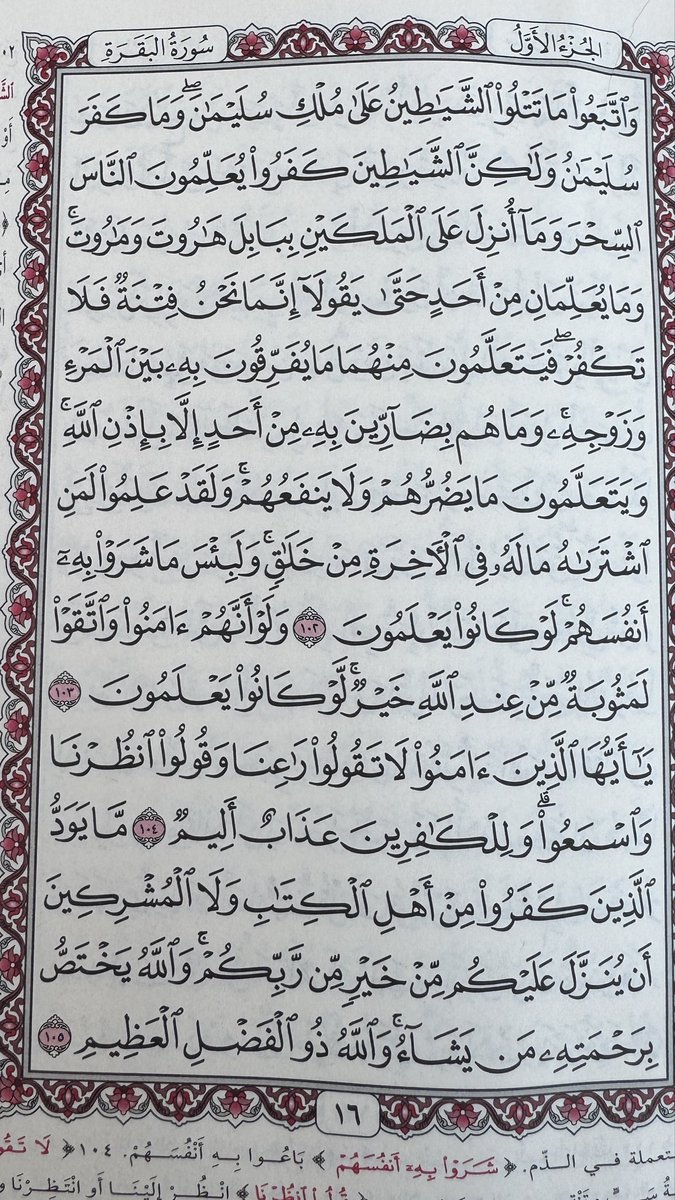 الجُزْءُ الأَوَّلُ
سُورَةُ البَقَرَةِ
وَٱتَّبَعُوا۟ مَا تَتْلُوا۟ ٱلشَّيَـٰطِينُ عَلَىٰ مُلْكِ سُلَيْمَـٰنَۖ وَمَا كَفَرَ
سُلَيْمَـٰنُ وَلَـٰكِنَّ ٱلشَّيَـٰطِينَ كَفَرُوا۟ يُعَلِّمُونَ ٱلنَّاسَ
ٱلسِّحْرَ وَمَآ أُنزِلَ عَلَى ٱلْمَلَكَيْنِ بِبَابِلَ هَـٰرُوتَ وَمَـٰرُوتَۚ
وَمَا يُعَلِّمَانِ مِنْ أَحَدٍ حَتَّىٰ يَقُولَآ إِنَّمَا نَحْنُ فِتْنَةٌ فَلَا
تَكْفُرْۖ فَيَتَعَلَّمُونَ مِنْهُمَا مَا يُفَرِّقُونَ بِهِۦ بَيْنَ ٱلْمَرْءِ
وَزَوْجِهِۦۚ وَمَا هُم بِضَآرِّينَ بِهِۦ مِنْ أَحَدٍ إِلَّا بِإِذْنِ ٱللَّهِۚ
وَيَتَعَلَّمُونَ مَا يَضُرُّهُمْ وَلَا يَنفَعُهُمْۚ وَلَقَدْ عَلِمُوا۟ لَمَنِ
ٱشْتَرَىٰهُ مَا لَهُۥ فِى ٱلْـَٔاخِرَةِ مِنْ خَلَـٰقٍۚ وَلَبِئْسَ مَا شَرَوْا۟ بِهِۦٓ
أَنفُسَهُمْۚ لَوْ كَانُوا۟ يَعْلَمُونَ ١٠٢ وَلَوْ أَنَّهُمْ ءَامَنُوا۟ وَٱتَّقَوْا۟
لَمَثُوبَةٌ مِّنْ عِندِ ٱللَّهِ خَيْرٌۚ لَّوْ كَانُوا۟ يَعْلَمُونَ ١٠٣
يَـٰٓأَيُّهَا ٱلَّذِينَ ءَامَنُوا۟ لَا تَقُولُوا۟ رَٰعِنَا وَقُولُوا۟ ٱنظُرْنَا
وَٱسْمَعُوا۟ۗ وَلِلْكَـٰفِرِينَ عَذَابٌ أَلِيمٌ ١٠٤ مَّا يَوَدُّ
ٱلَّذِينَ كَفَرُوا۟ مِنْ أَهْلِ ٱلْكِتَـٰبِ وَلَا ٱلْمُشْرِكِينَ
أَن يُنَزَّلَ عَلَيْكُم مِّنْ خَيْرٍ مِّن رَّبِّكُمْۚ وَٱللَّهُ يَخْتَصُّ
بِرَحْمَتِهِۦ مَن يَشَآءُۚ وَٱللَّهُ ذُو ٱلْفَضْلِ ٱلْعَظِيمِ ١٠٥
١٦
فِي الذَّم. ﴿شَرَوْا۟ بِهِۦٓ أَنفُسَهُمْ﴾ بَاعُوا بِهِ أَنْفُسَهُمْ. ١٠٤ ﴿لَا
انْظُرْ إِلَيْنَا أَوِ انْتَظِرْنَا